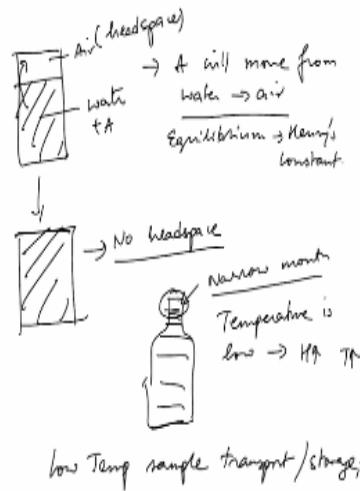 Air (headspace)
→ A will move from
water → air
water
+ A
Equilibrium → Henry's
constant
→ No headspace
Narrow mouth
Temperature is
low → H↑ T↑
low Temp sample transport/storage,